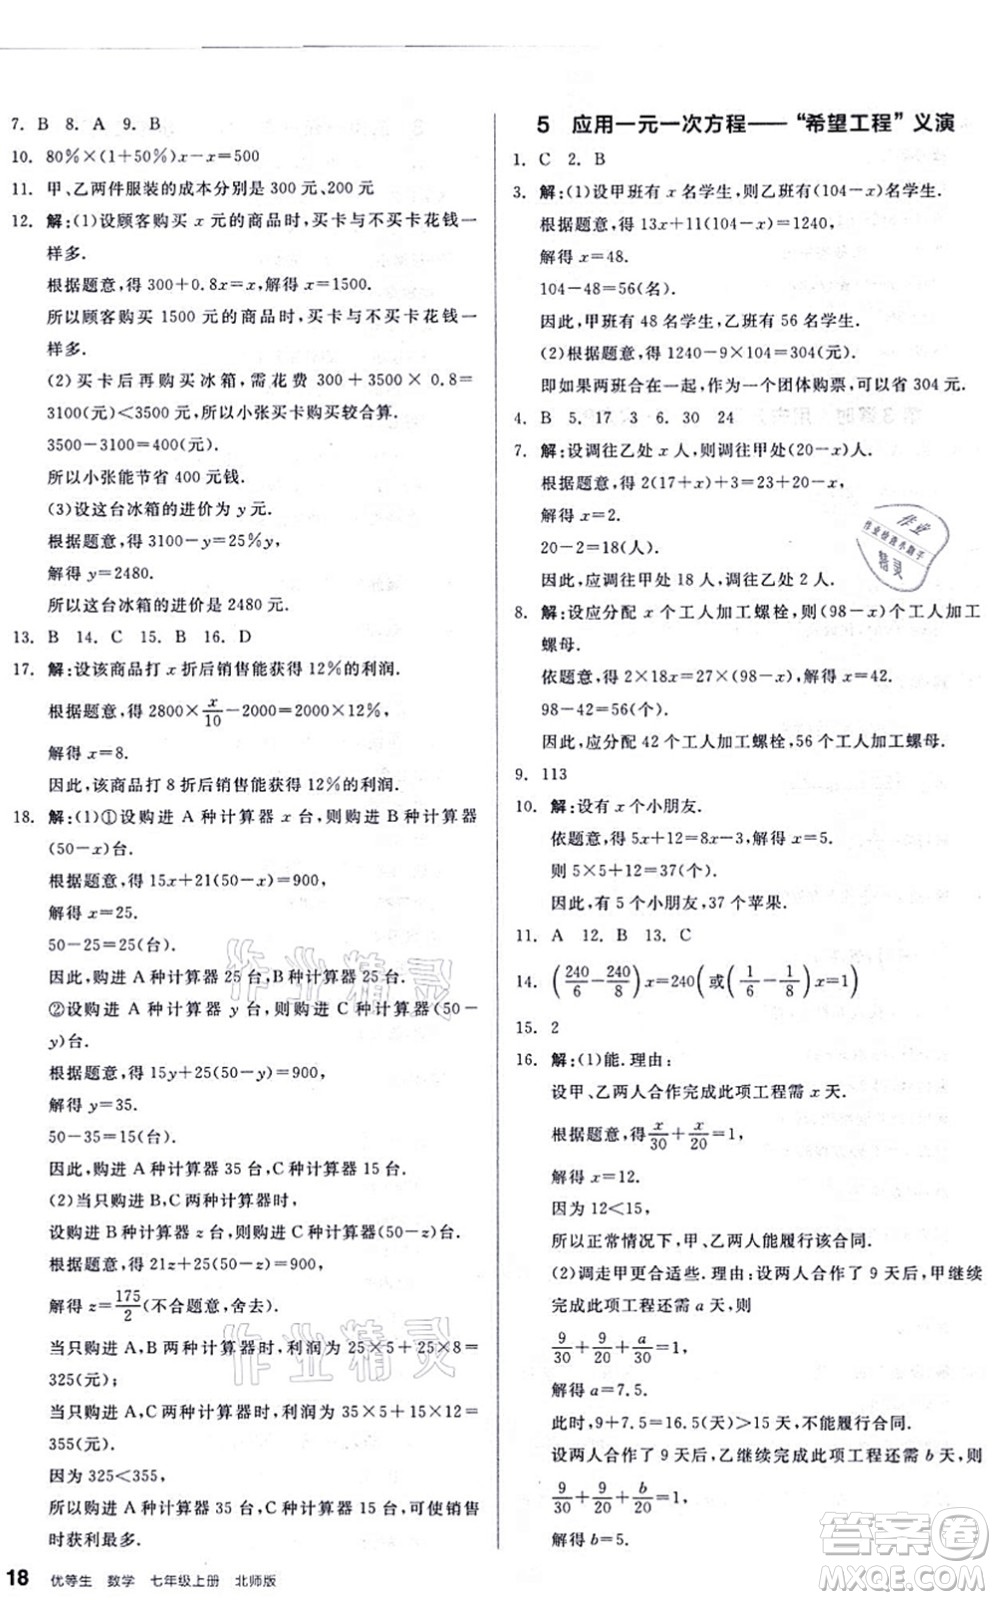 7. B 8. A 9. B
10. 80%×(1+50%)x-x=50
11. 甲、乙两件服装的成本分别是 300 元、200 元
12. 解:(1)设顾客购买 x 元的商品时,买卡与不买卡花钱一
样多.
根据题意,得 300+0.8x=x,解得 x=1500.
所以顾客购买 1500 元的商品时,买卡与不买卡花钱一
样多.
(2)买卡后再购买冰箱,需花费 300+3500×0.8=
3100(元)<3500 元,所以小张买卡购买较合算.
3500-3100=400(元).
所以小张能节省 400 元钱.
(3)设这台冰箱的进价为 y 元.
根据题意,得 3100-y=25%y,
解得 y=2480.
所以这台冰箱的进价是 2480 元.
13. B 14. C 15. B 16. D
17. 解:设该商品打 x 折后销售能获得 12%的利润.
根据题意,得 2800×x/10-2000=2000×12%,
解得 x=8.
因此,该商品打 8 折后销售能获得 12%的利润.
18. 解:(1)①设购进 A 种计算器 x 台,则购进 B 种计算器
(50-x)台.
根据题意,得 15x+21(50-x)=900,
解得 x=25.
50-25=25(台).
因此,购进 A 种计算器 25 台,B 种计算器 25 台.
②设购进 A 种计算器 y 台,则购进 C 种计算器(50-
y)台.
根据题意,得 15y+25(50-y)=900,
解得 y=35.
50-35=15(台).
因此,购进 A 种计算器 35 台,C 种计算器 15 台.
(2)当只购进 B,C 两种计算器时,
设购进 B 种计算器 z 台,则购进 C 种计算器(50-z)台.
根据题意,得 21z+25(50-z)=900,
解得 z=175/2(不合题意,舍去).
当只购进 A,B 两种计算器时,利润为 25×5+25×8=
325(元);
当只购进 A,C 两种计算器时,利润为 35×5+15×12=
355(元).
因为 325<355,
所以购进 A 种计算器 35 台,C 种计算器 15 台,可使销售
时获利最多.
18 优等生 数学 七年级上册 北师版
5 应用一元一次方程——“希望工程”义演
1. C 2. B
3. 解:(1)设甲班有 x 名学生,则乙班有(104-x)名学生.
根据题意,得 13x+11(104-x)=1240,
解得 x=48.
104-48=56(名).
因此,甲班有 48 名学生,乙班有 56 名学生.
(2)根据题意,得 1240-9×104=304(元).
即如果两班合在一起,作为一个团体购票,可省 304 元.
4. B 5. 17 3 6. 30 24
7. 解:设调往乙处 x 人,则调往甲处(20-x)人.
根据题意,得 2(17+x)+3=23+20-x,
解得 x=2.
20-2=18(人).
因此,应调往甲处 18 人,调往乙处 2 人.
8. 解:设应分配 x 个工人加工螺栓,则(98-x)个工人加工
螺母.
依题意,得 2×18x=27×(98-x),解得 x=42.
98-42=56(个).
因此,应分配 42 个工人加工螺栓,56 个工人加工螺母.
9. 113
10. 解:设有 x 个小朋友.
依题意,得 5x+12=8x-3,解得 x=5.
则 5×5+12=37(个).
因此,有 5 个小朋友,37 个苹果.
11. A 12. B 13. C
14. (240/6-240/8)x=240(或(1/6-1/8)x=1)
15. 2
16. 解:(1)能.理由:
设甲、乙两人合作完成此项工程需 x 天.
根据题意,得x/30+x/20=1,
解得 x=12.
因为 12<15,
所以正常情况下,甲、乙两人能履行该合同.
(2)调走甲更合适些.理由:设两人合作了 9 天后,甲继续
完成此项工程还需 a 天,则
9/30+9/20+a/30=1,
解得 a=7.5.
此时,9+7.5=16.5(天)>15 天,不能履行合同.
设两人合作了 9 天后,乙继续完成此项工程还需 b 天,则
9/30+9/20+b/20=1,
解得 b=5.
作业精灵
作业精灵
作业
精灵
答案圈